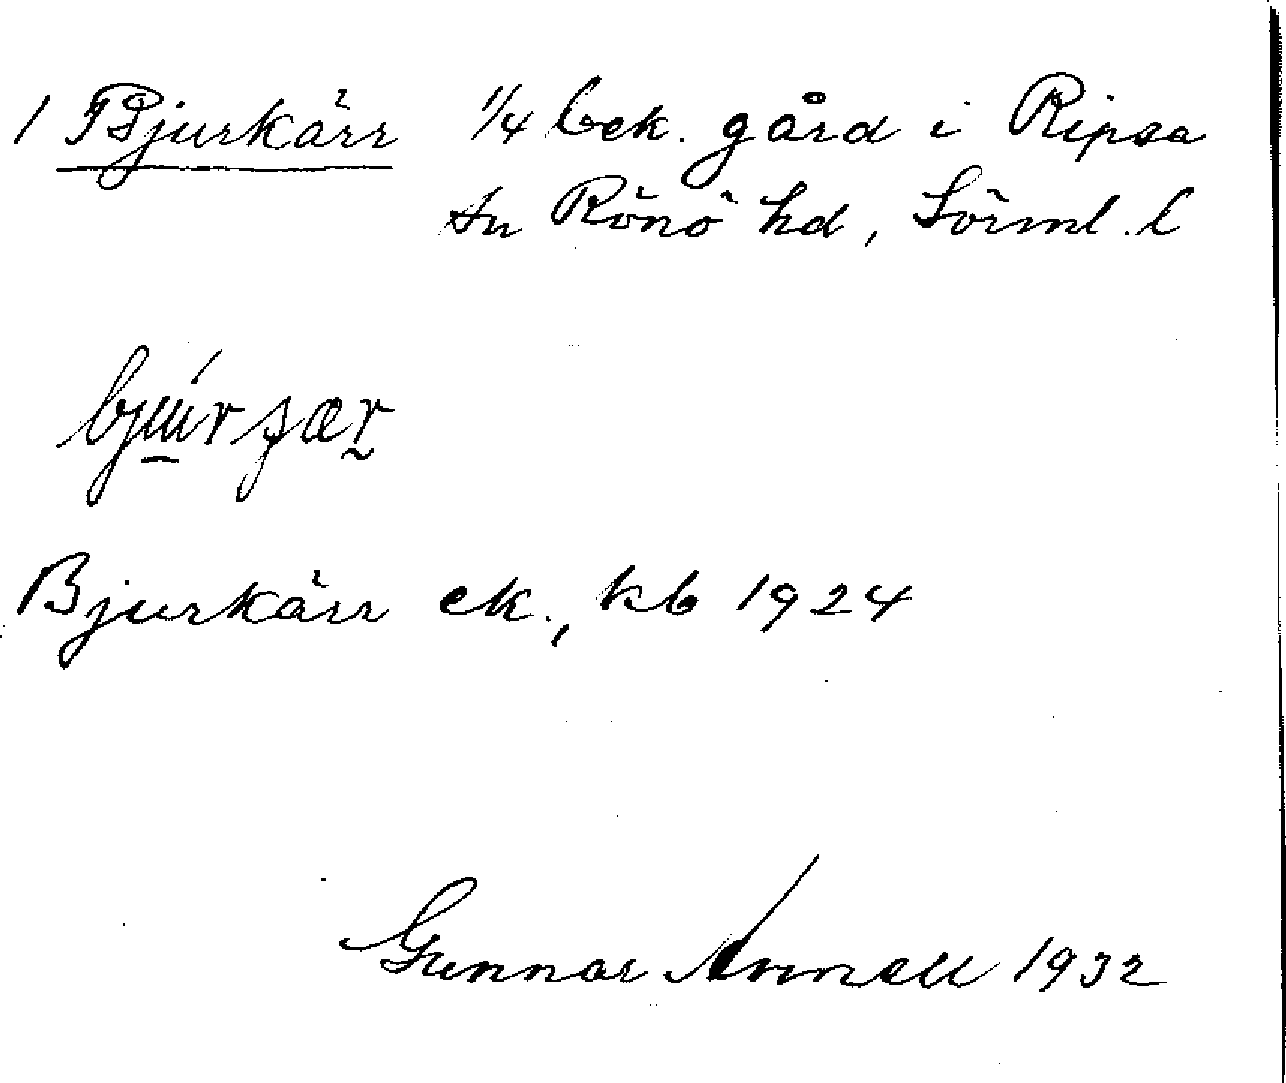 1 Bjurkärr 1/4 bek. gård i Ripsa
sn Rönö hd, Sörml. l
Bjurkärr ek., kb 1924
Gunnar 1932